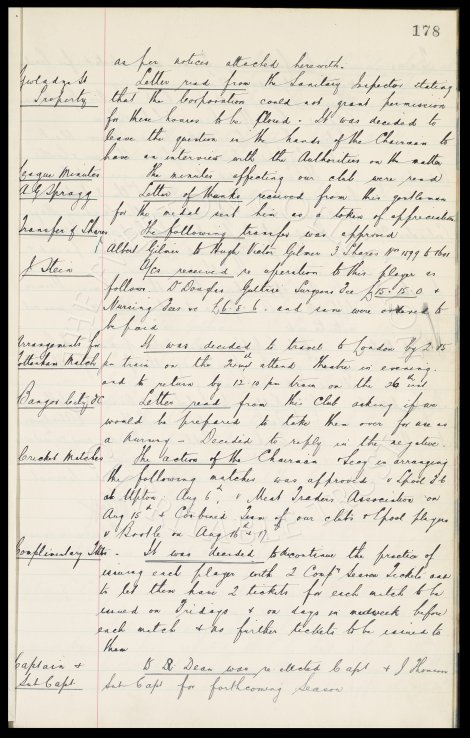 178
as per notices attached herewith.
Gwladys St Letter read from the Sanitary Inspector stating
Property that the Corporation could not grant permission
for these houses to be closed. It was decided to
leave the question in the hands of the Chairman to
have an interview with the Authorities on the matter
League Minutes The minutes affecting our club were read
A G Spragg Letter of thanks received from this gentleman
for the medal sent him as a token of appreciation
Transfer of Shares The following transfer was approved
Albert Gilmer to Hugh Victor Gilmer 3 Shares Nos 1599 to 1601
J Stein A/cs received re operation to this player as
follows Dr Douglas Guthrie Surgeons Fee £15.15.0 &
Nursing Fees &c £6.6.6. and same were ordered to
be paid
Arrangements for It was decided to travel to London by 2.15
Tottenham Match pm train on the attend Theatre in evening.
and to return by 12.10 pm train on the 26th inst
Bangor City FC Letter read from this Club asking if we
would be prepared to take them over for use as
a nursery - Decided to reply in the negative.
Cricket Matches The action of the Chairman & Secy in arranging
the following matches was approved, v Lpool
at Upton, Aug 6th, v Meat Traders Association on
Aug 15th & Combined Team of our club & Lpool players
v Bootle on Aug 16th & 17th
Complimentary Tkts. It was decided to discontinue the practice of
issuing each player with 2 Comp. Season Tickets and
to let them have 2 tickets for each match to be
issued on Fridays & on days in midweek before
each match & no further tickets to be issued to
them
Captain & W R Dean was re-elected Capt & J Thomson
Sub Capt Sub Capt for forthcoming Season